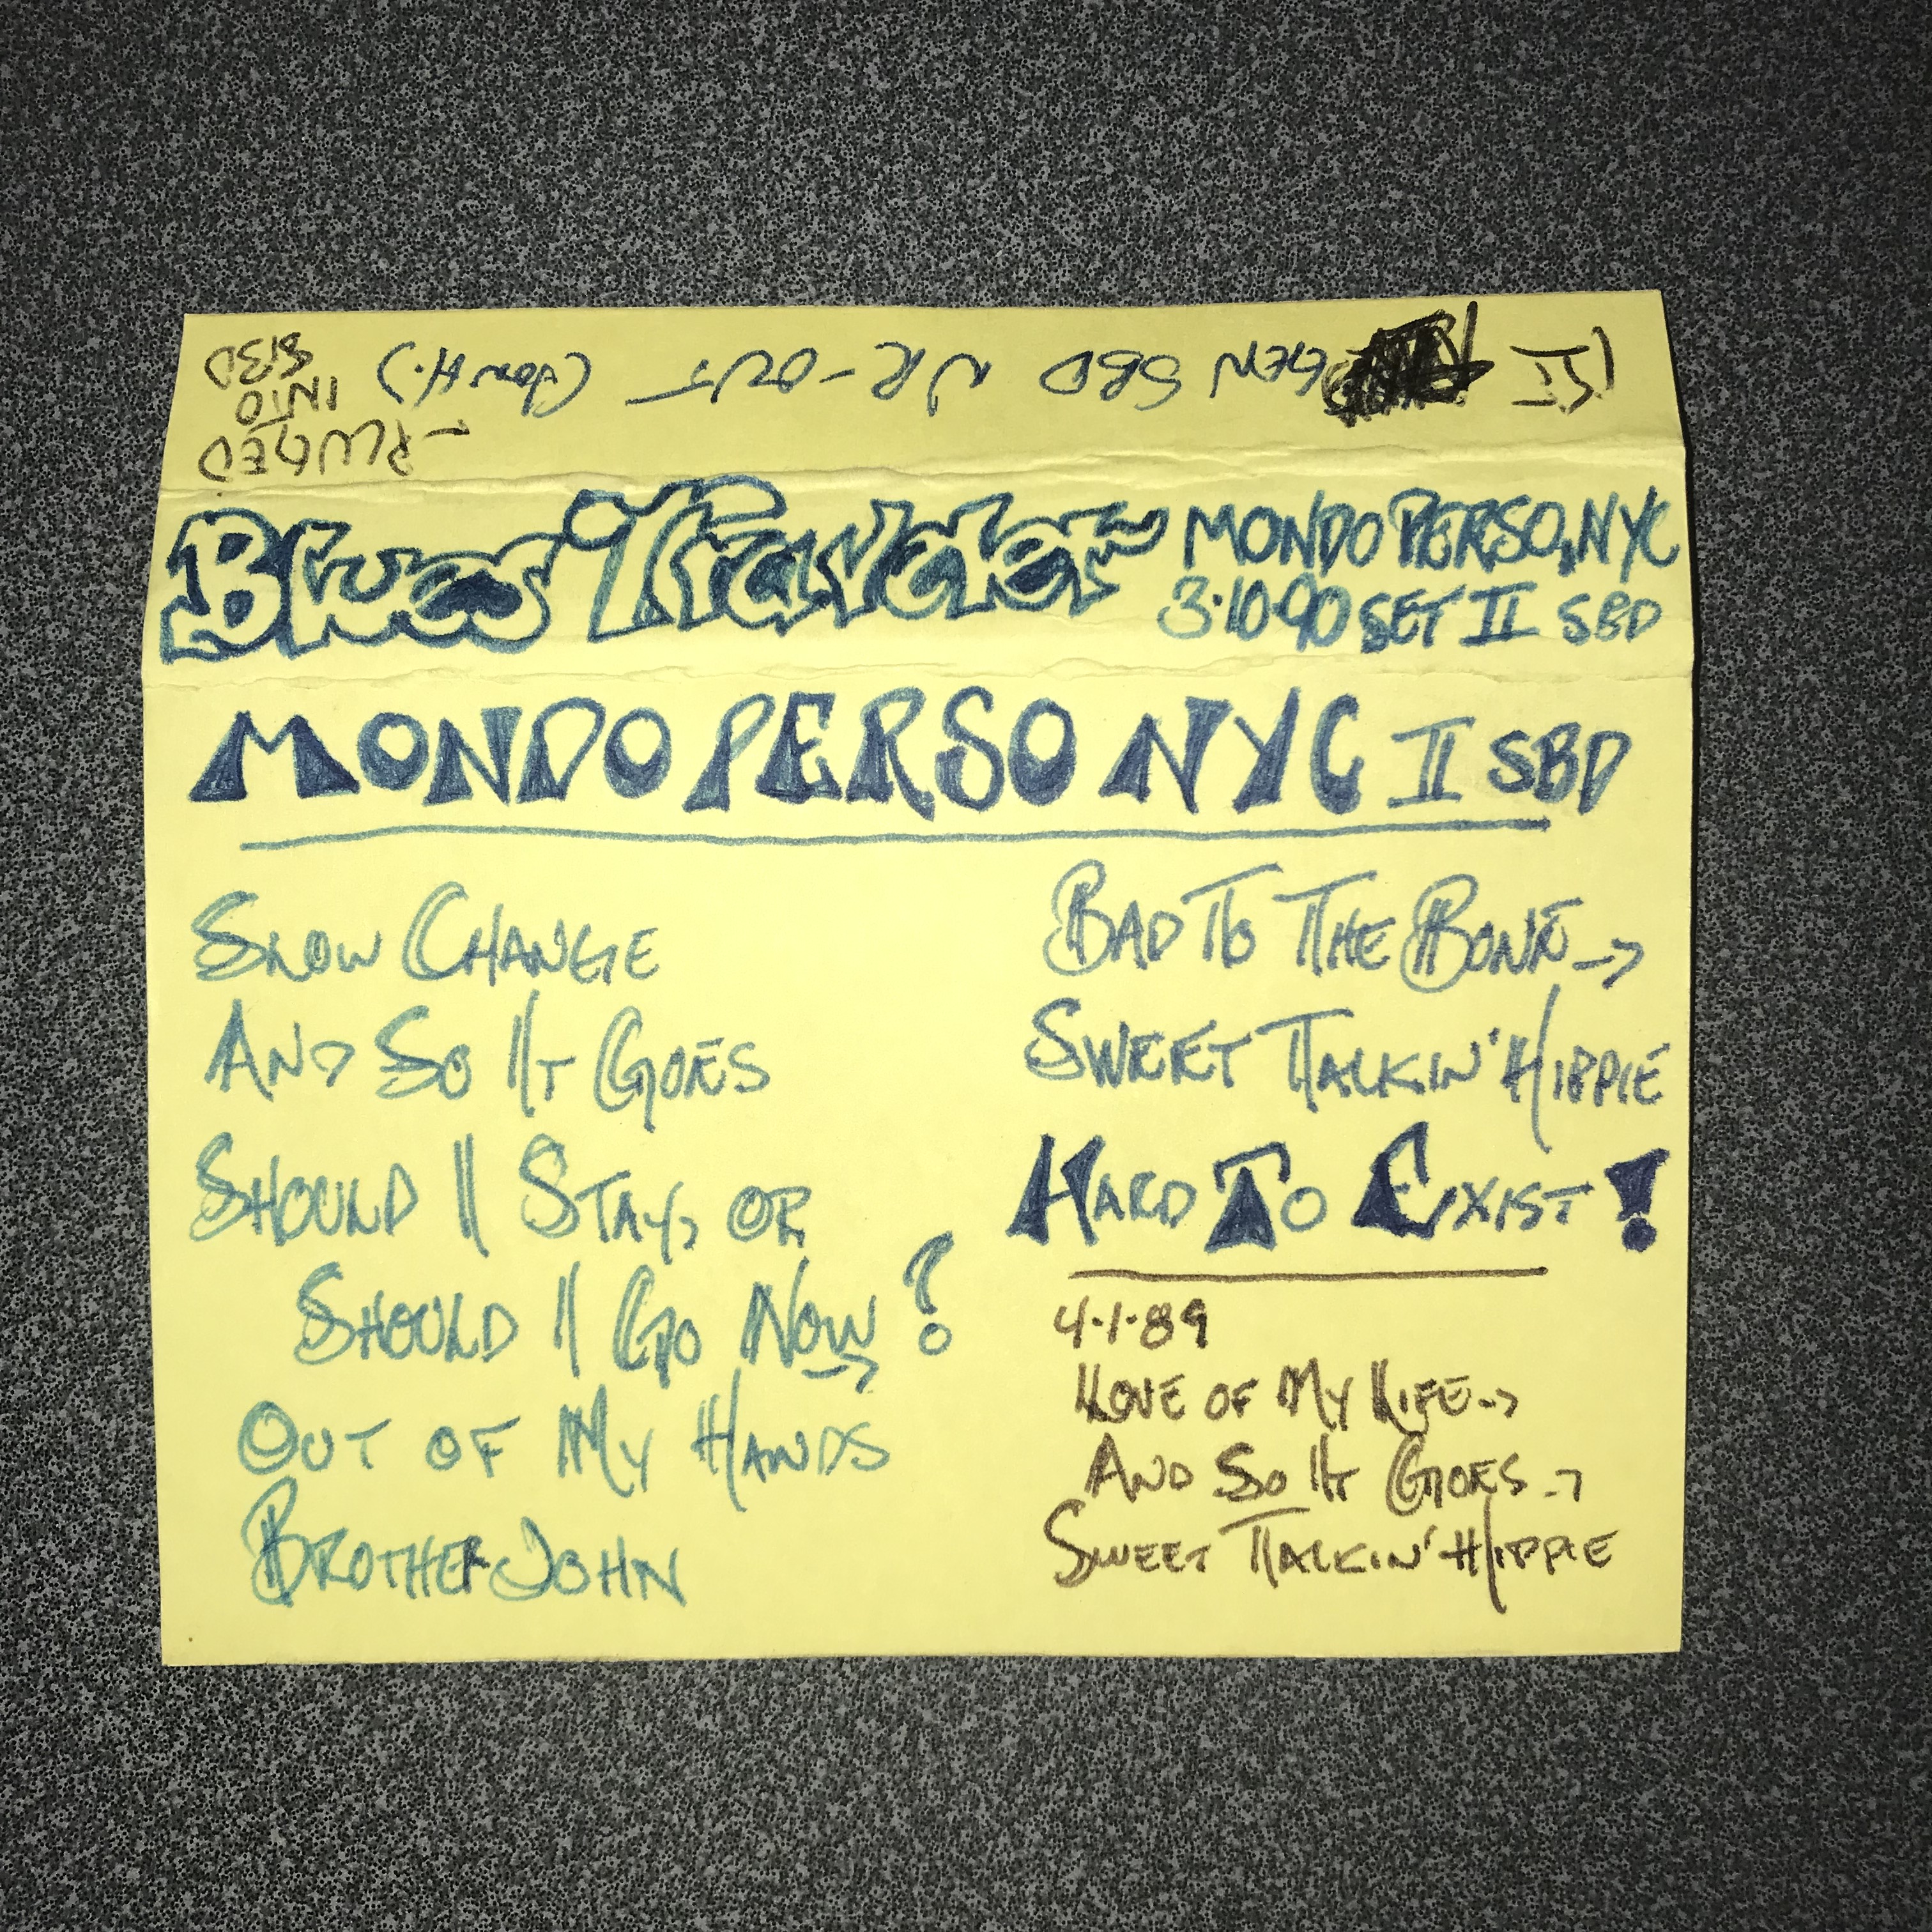 1ST GEN SBD NR-OUT (JON H.)
- PLUGED
INTO
SBD
Blues Traveler
MONDO PERSO, NYC
3·10·90 SET II SBD
MONDO PERSO NYC II SBD
SLOW CHANGE
AND SO IT GOES
SHOULD I STAY, OR
SHOULD I GO NOW? →
OUT OF MY HANDS
BROTHER JOHN
BAD TO THE BONE →
SWEET TALKIN' HIPPIE
HARD TO EXIST!
4·1·89
LOVE OF MY LIFE →
AND SO IT GOES →
SWEET TALKIN' HIPPIE